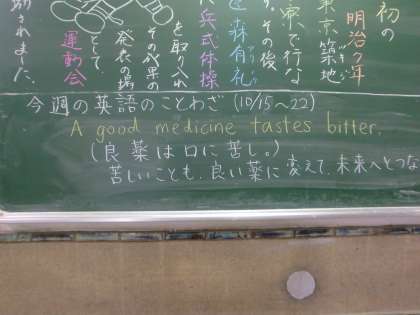 初の
明治7年
東京築地
で行な
。その後
森有礼
兵式体操
を取り入れ
その成果の
発表の場
として
運動会
されました。
今週の英語のことわざ (10/15~22)
A good medicine tastes bitter.
(良薬は口に苦し。)
苦しいことも、良い薬に変えて、未来へとつな